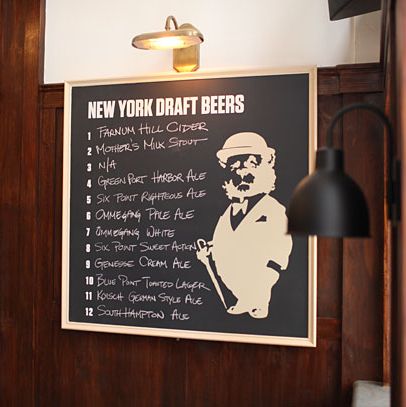 NEW YORK DRAFT BEERS
1 FARNUM HILL CIDER
2 MOTHER'S MILK STOUT
3 N/A
4 GREEN PORT HARBOR ALE
5 SIX POINT RIGHTEOUS ALE
6 OMMEGANG PALE ALE
7 OMMEGANG WHITE
8 SIX POINT SWEET ACTION
9 GENESSE CREAM ALE
10 BLUE POINT TOASTED LAGER
11 KOLSCH GERMAN STYLE ALE
12 SOUTHHAMPTON ALE